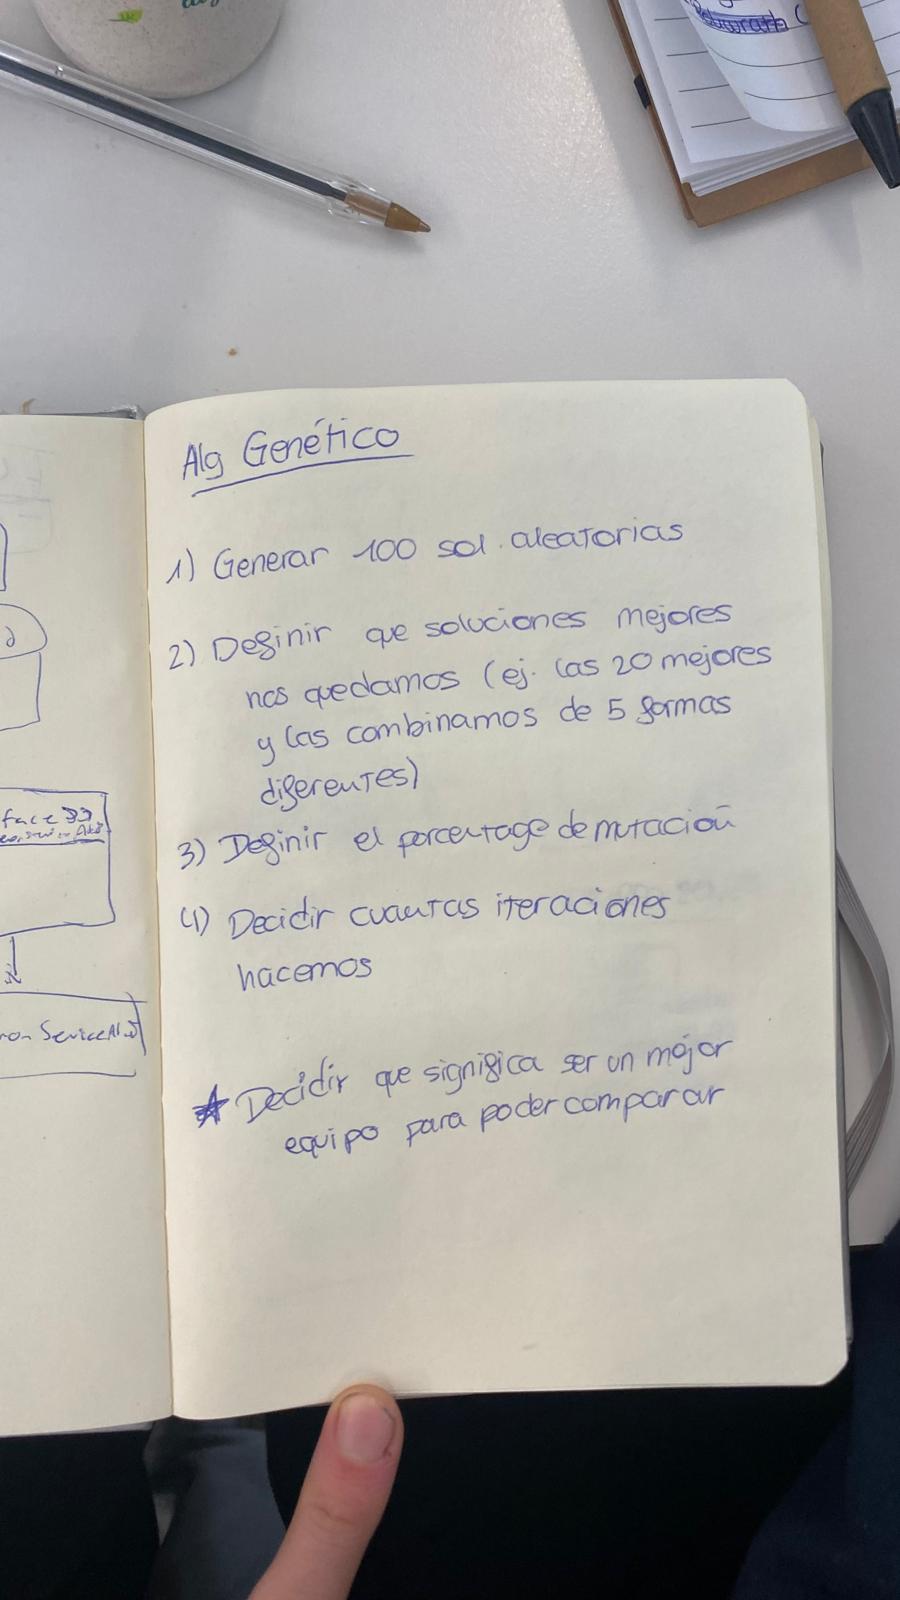 Poliwrath (
Alg Genético
1) Generar 100 sol. aleatorias
2) Definir que soluciones mejores
nos quedamos (ej. las 20 mejores
y las combinamos de 5 formas
diferentes)
3) Definir el porcentage de mutación
4) Decidir cuantas iteraciones
hacemos
Decidir que significa ser un mejor
equipo para poder comparar
face